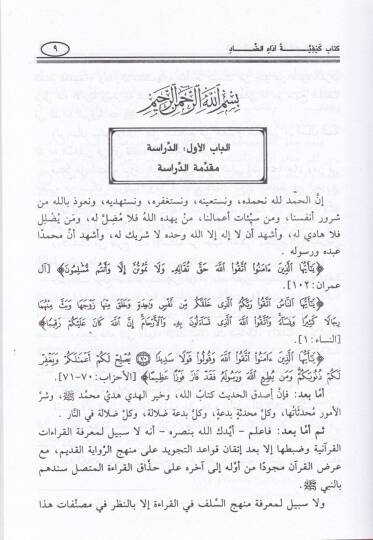 كتاب كَيْفِيَّـةُ أدَاءِ الضَّـادِ
٩
بِسْمِ اللهِ الرَّحْمٰنِ الرَّحِيمِ
الباب الأول: الدِّراسة
مقدِّمة الدِّراسة
إنَّ الحمد لله نحمده، ونستعينه، ونستغفره، ونستهديه، ونعوذ بالله من
شرور أنفسنا، ومن سيِّئات أعمالنا، منْ يهده اللهُ فلا مُضِلَّ له، ومَن يُضْلِل
فلا هادي له، وأشهد أن لا إله إلا الله وحده لا شريك له، وأشهد أنَّ محمدًا
عبده ورسوله .
﴿يَٰٓأَيُّهَا الَّذِينَ ءَامَنُوا اتَّقُوا اللَّهَ حَقَّ تُقَاتِهِۦ وَلَا تَمُوتُنَّ إِلَّا وَأَنتُم مُّسْلِمُونَ﴾ [آل
عمران: ١٠٢].
﴿يَٰٓأَيُّهَا النَّاسُ اتَّقُوا رَبَّكُمُ الَّذِى خَلَقَكُم مِّن نَّفْسٍ وَٰحِدَةٍ وَخَلَقَ مِنْهَا زَوْجَهَا وَبَثَّ مِنْهُمَا
رِجَالًا كَثِيرًا وَنِسَآءً وَاتَّقُوا اللَّهَ الَّذِى تَسَآءَلُونَ بِهِۦ وَالْأَرْحَامَ إِنَّ اللَّهَ كَانَ عَلَيْكُمْ رَقِيبًا﴾
[النساء: ١].
﴿يَٰٓأَيُّهَا الَّذِينَ ءَامَنُوا اتَّقُوا اللَّهَ وَقُولُوا قَوْلًا سَدِيدًا ۝٧٠ يُصْلِحْ لَكُمْ أَعْمَٰلَكُمْ وَيَغْفِرْ
لَكُمْ ذُنُوبَكُمْ وَمَن يُطِعِ اللَّهَ وَرَسُولَهُۥ فَقَدْ فَازَ فَوْزًا عَظِيمًا﴾ [الأحزاب: ٧٠-٧١].
أمّا بعد: فإنَّ أصدق الحديث كتاب الله، وخير الهدي هديُ محمّد ﷺ، وشرَّ
الأمور مُحدثاتُها، وكلَّ محدثةٍ بدعةٍ، وكلَّ بدعة ضلالة، وكلَّ ضلالة في النَّار .
ثم أمّا بعد: فاعلم - أيّدك الله بنصره - أنه لا سبيل لمعرفة القراءات
القرآنية وضبطها إلا بعد إتقان قواعد التجويد على منهج الرِّواية القديم، مع
عرض القرآن مجودًا من أوَّله إلى آخره على حذّاق القراءة المتصل سندهم
بالنبي ﷺ.
ولا سبيل لمعرفة منهج السَّلف في القراءة إلا بالنظر في مصنَّفات هذا